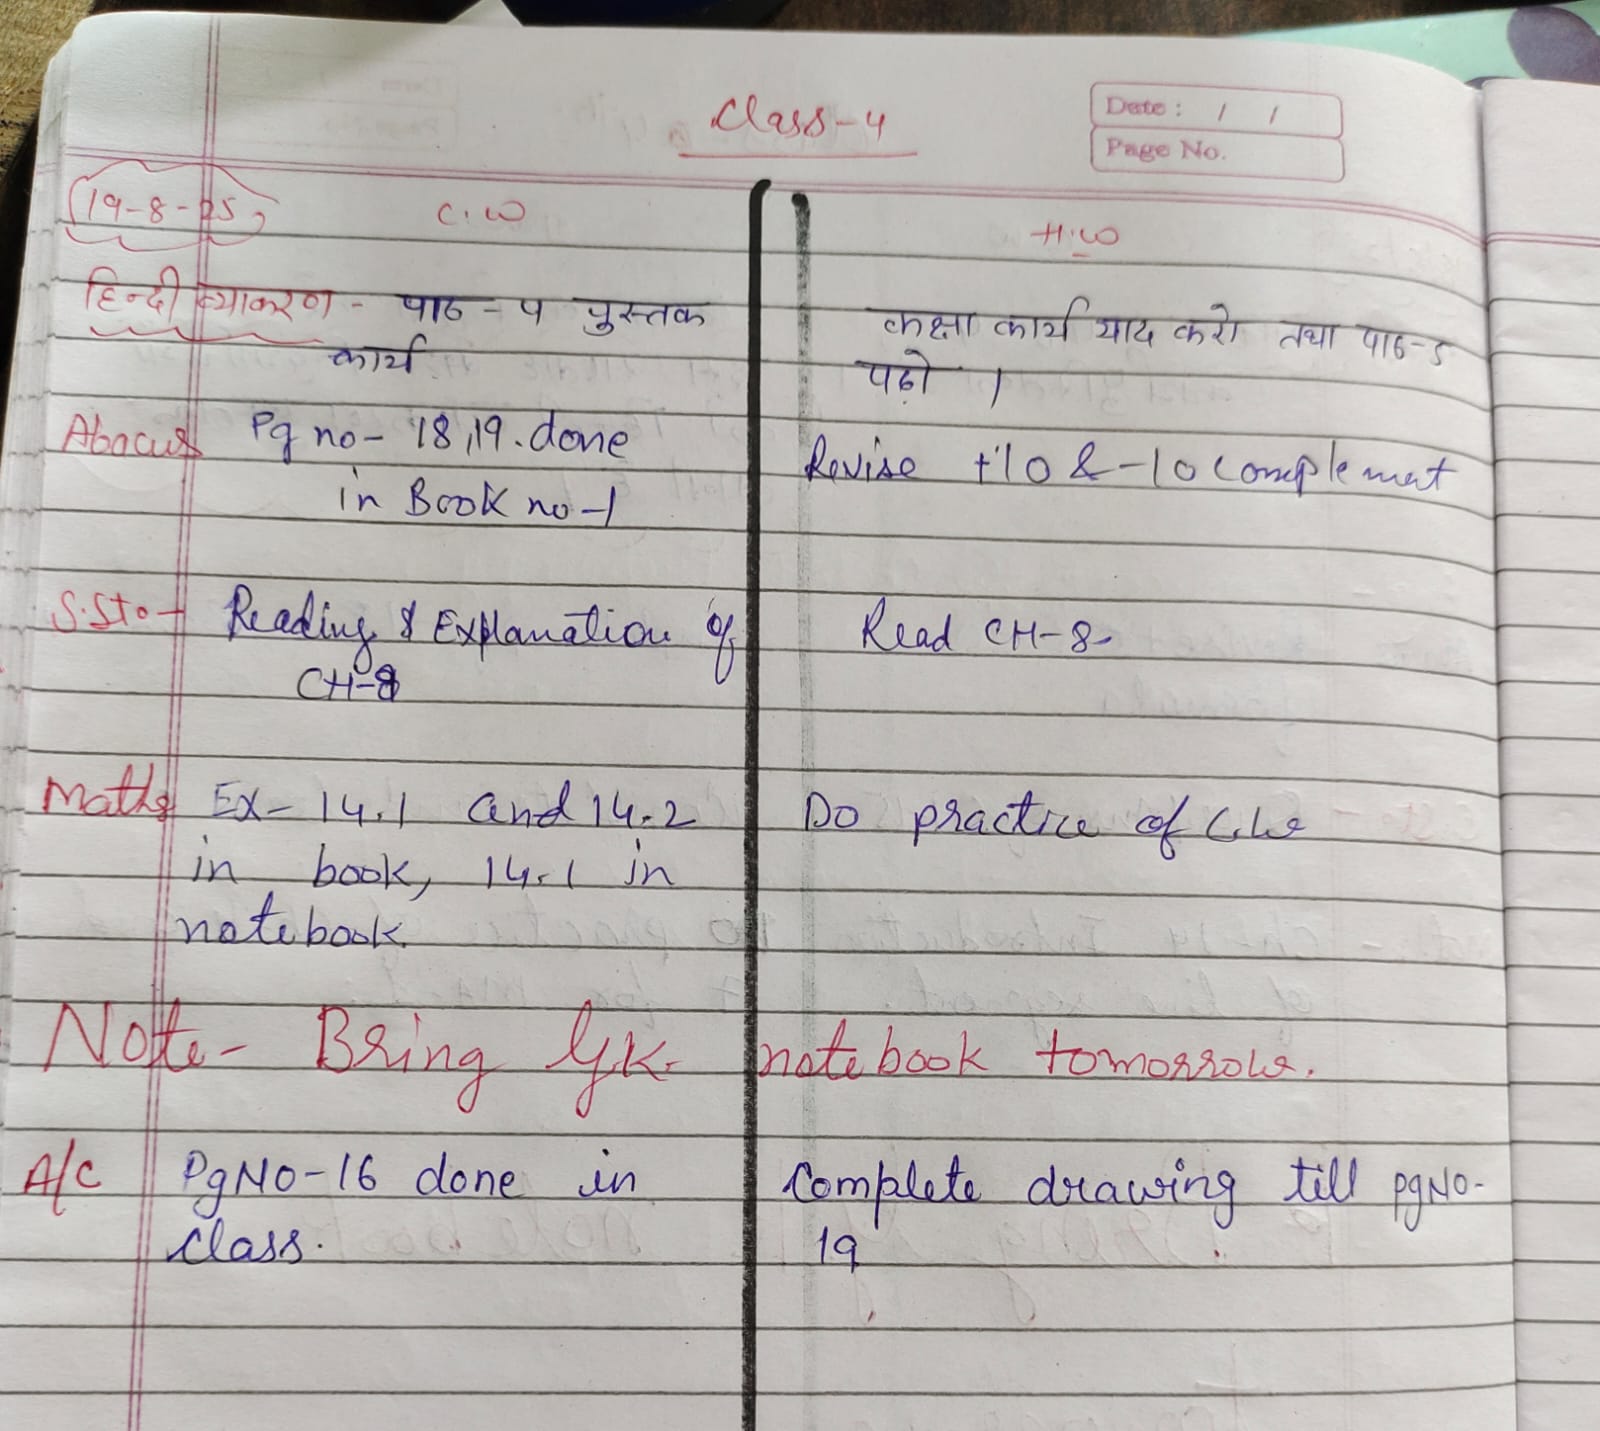 Class-4
Date : / /
Page No.
19-8-25
C.W
H.W
हिन्दी व्याकरण - पाठ - 4 पुस्तक
कार्य
कक्षा कार्य याद करो तथा पाठ-5
पढ़ो ।
Abacus Pg no- 18,19. done
in Book no-1
Revise +10 & -10 complemat
S.St Reading & Explanation of
CH-8
Read CH-8-
Maths Ex- 14.1 and 14.2
in book, 14.1 in
notebook.
Do practice of C.W
Note- Bring G.K. notebook tomorrow.
A/C PgNO-16 done in
class.
Complete drawing till pgNO-
19